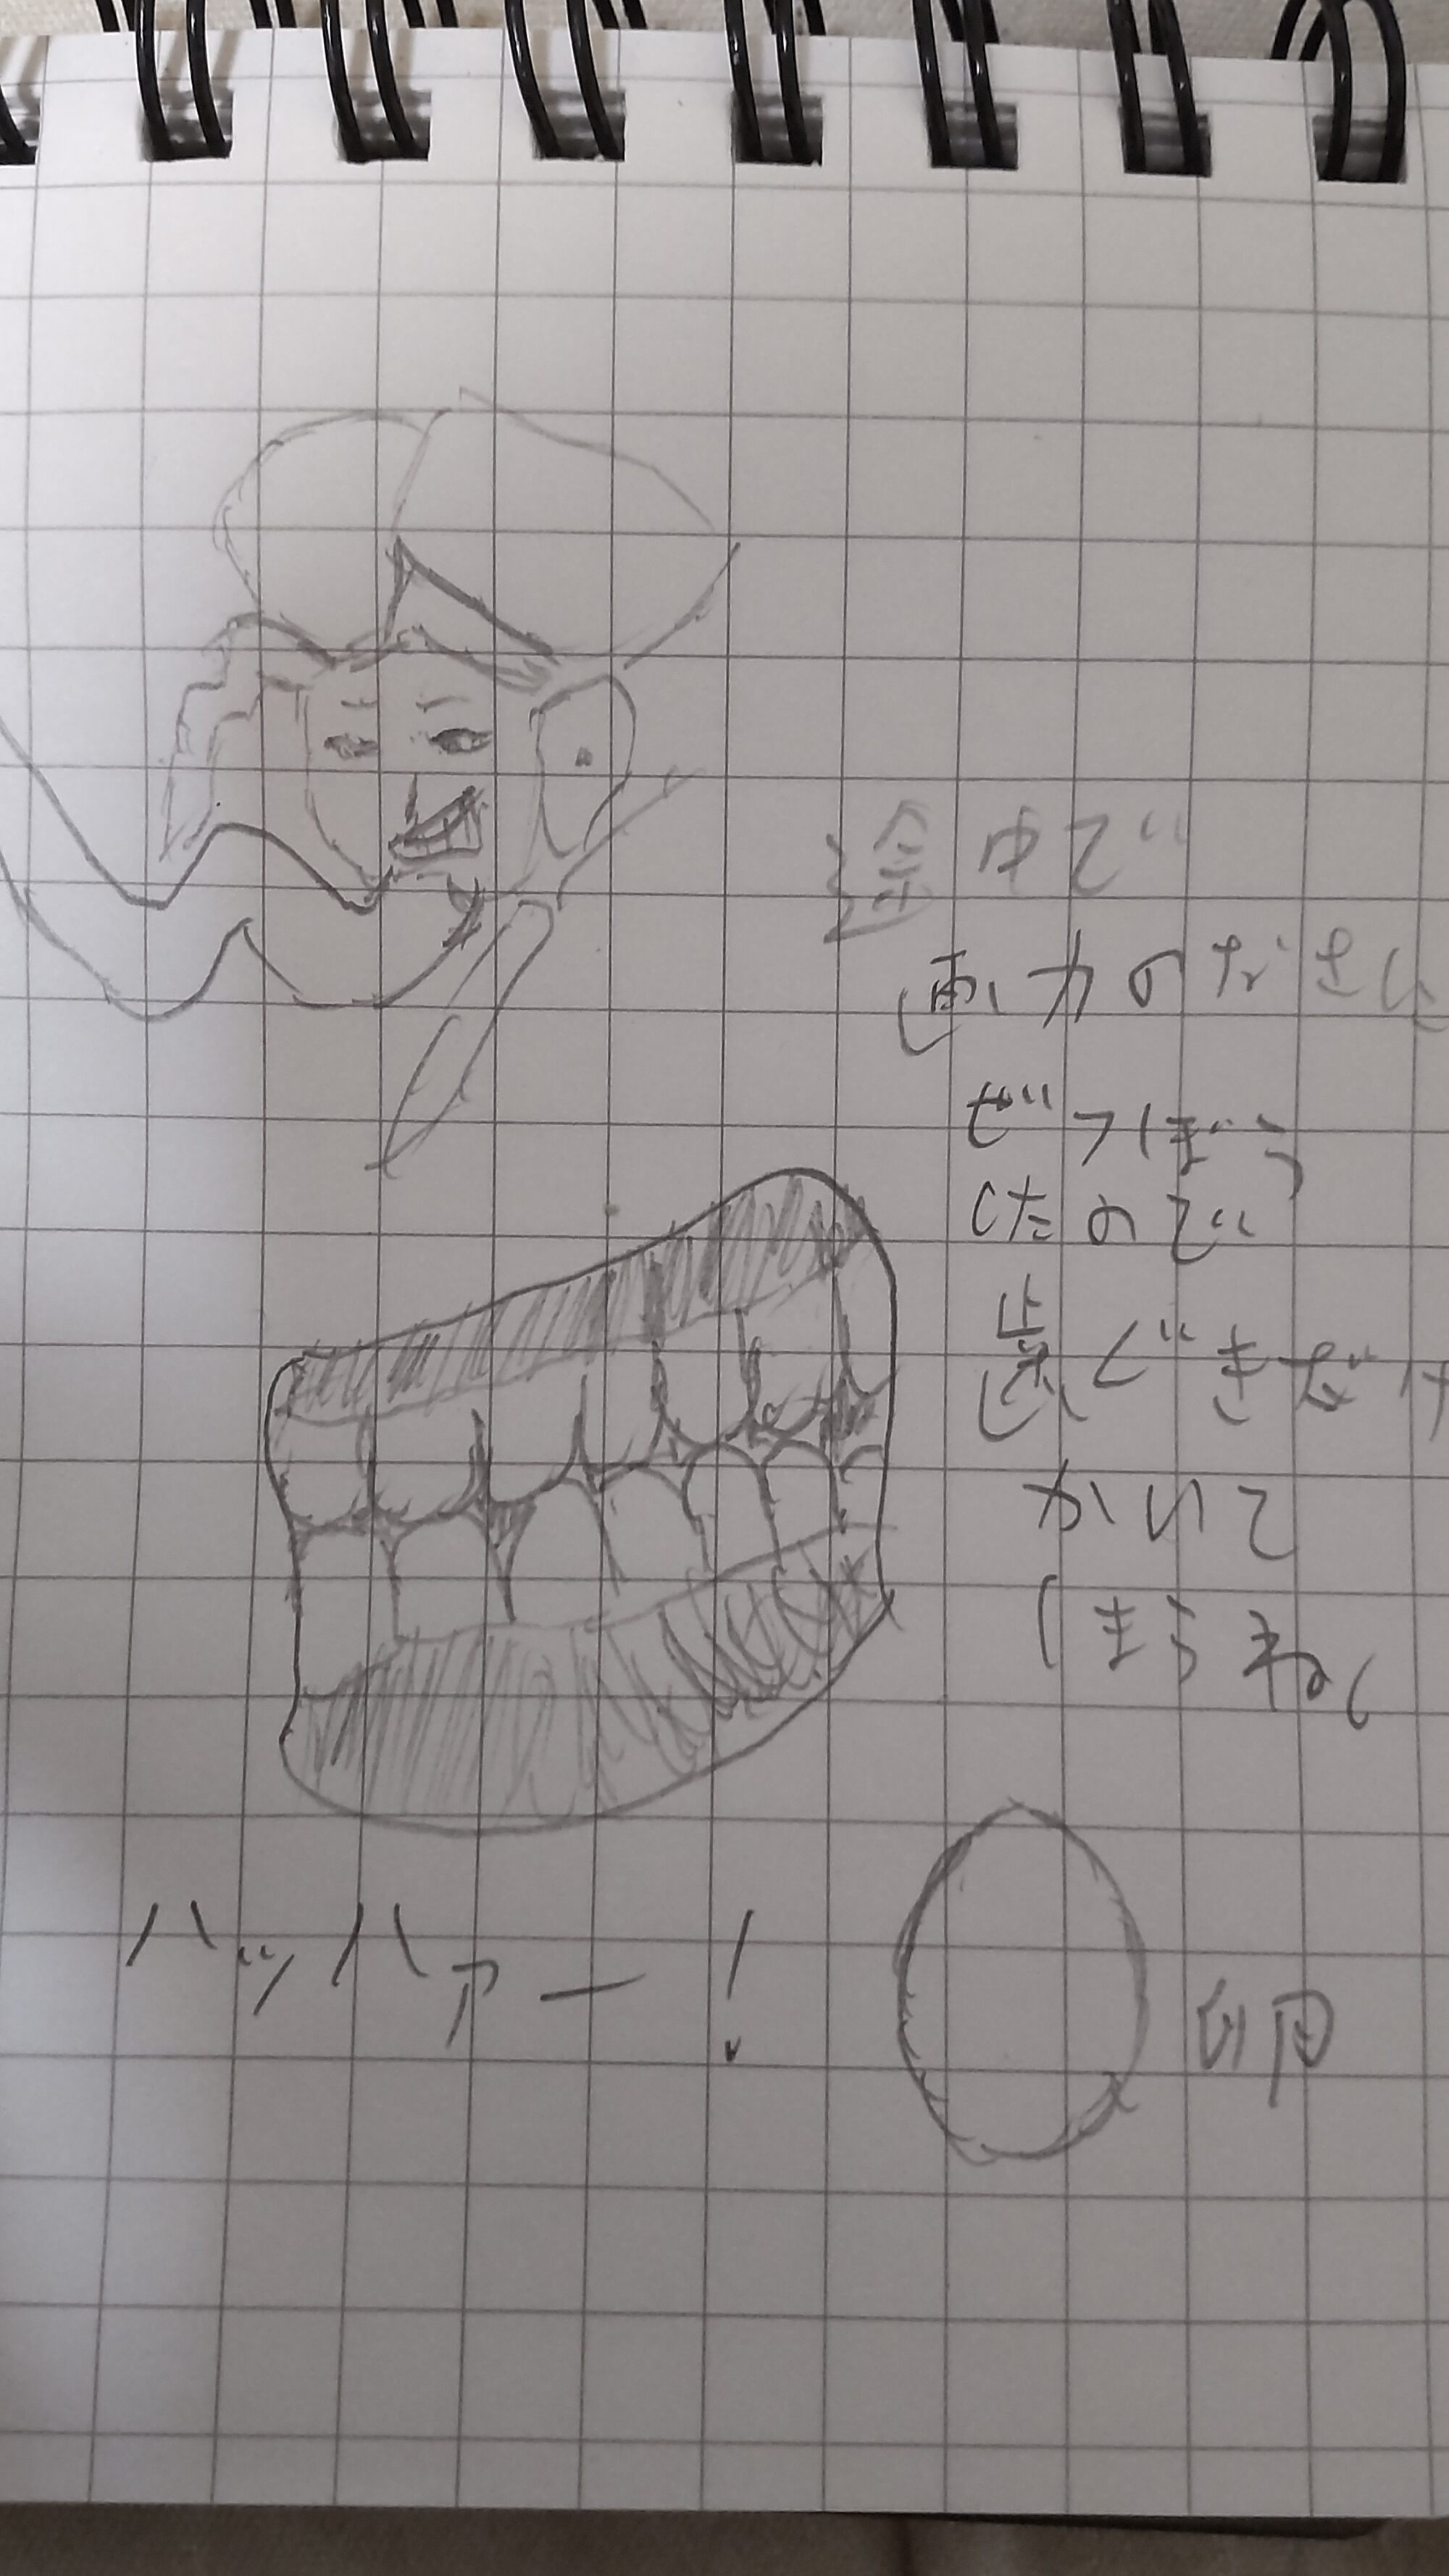 途中で
画力のなさに
ぜつぼう
したので
歯ぐきだけ
かいて
しまうね、
ハッハァー!
卵